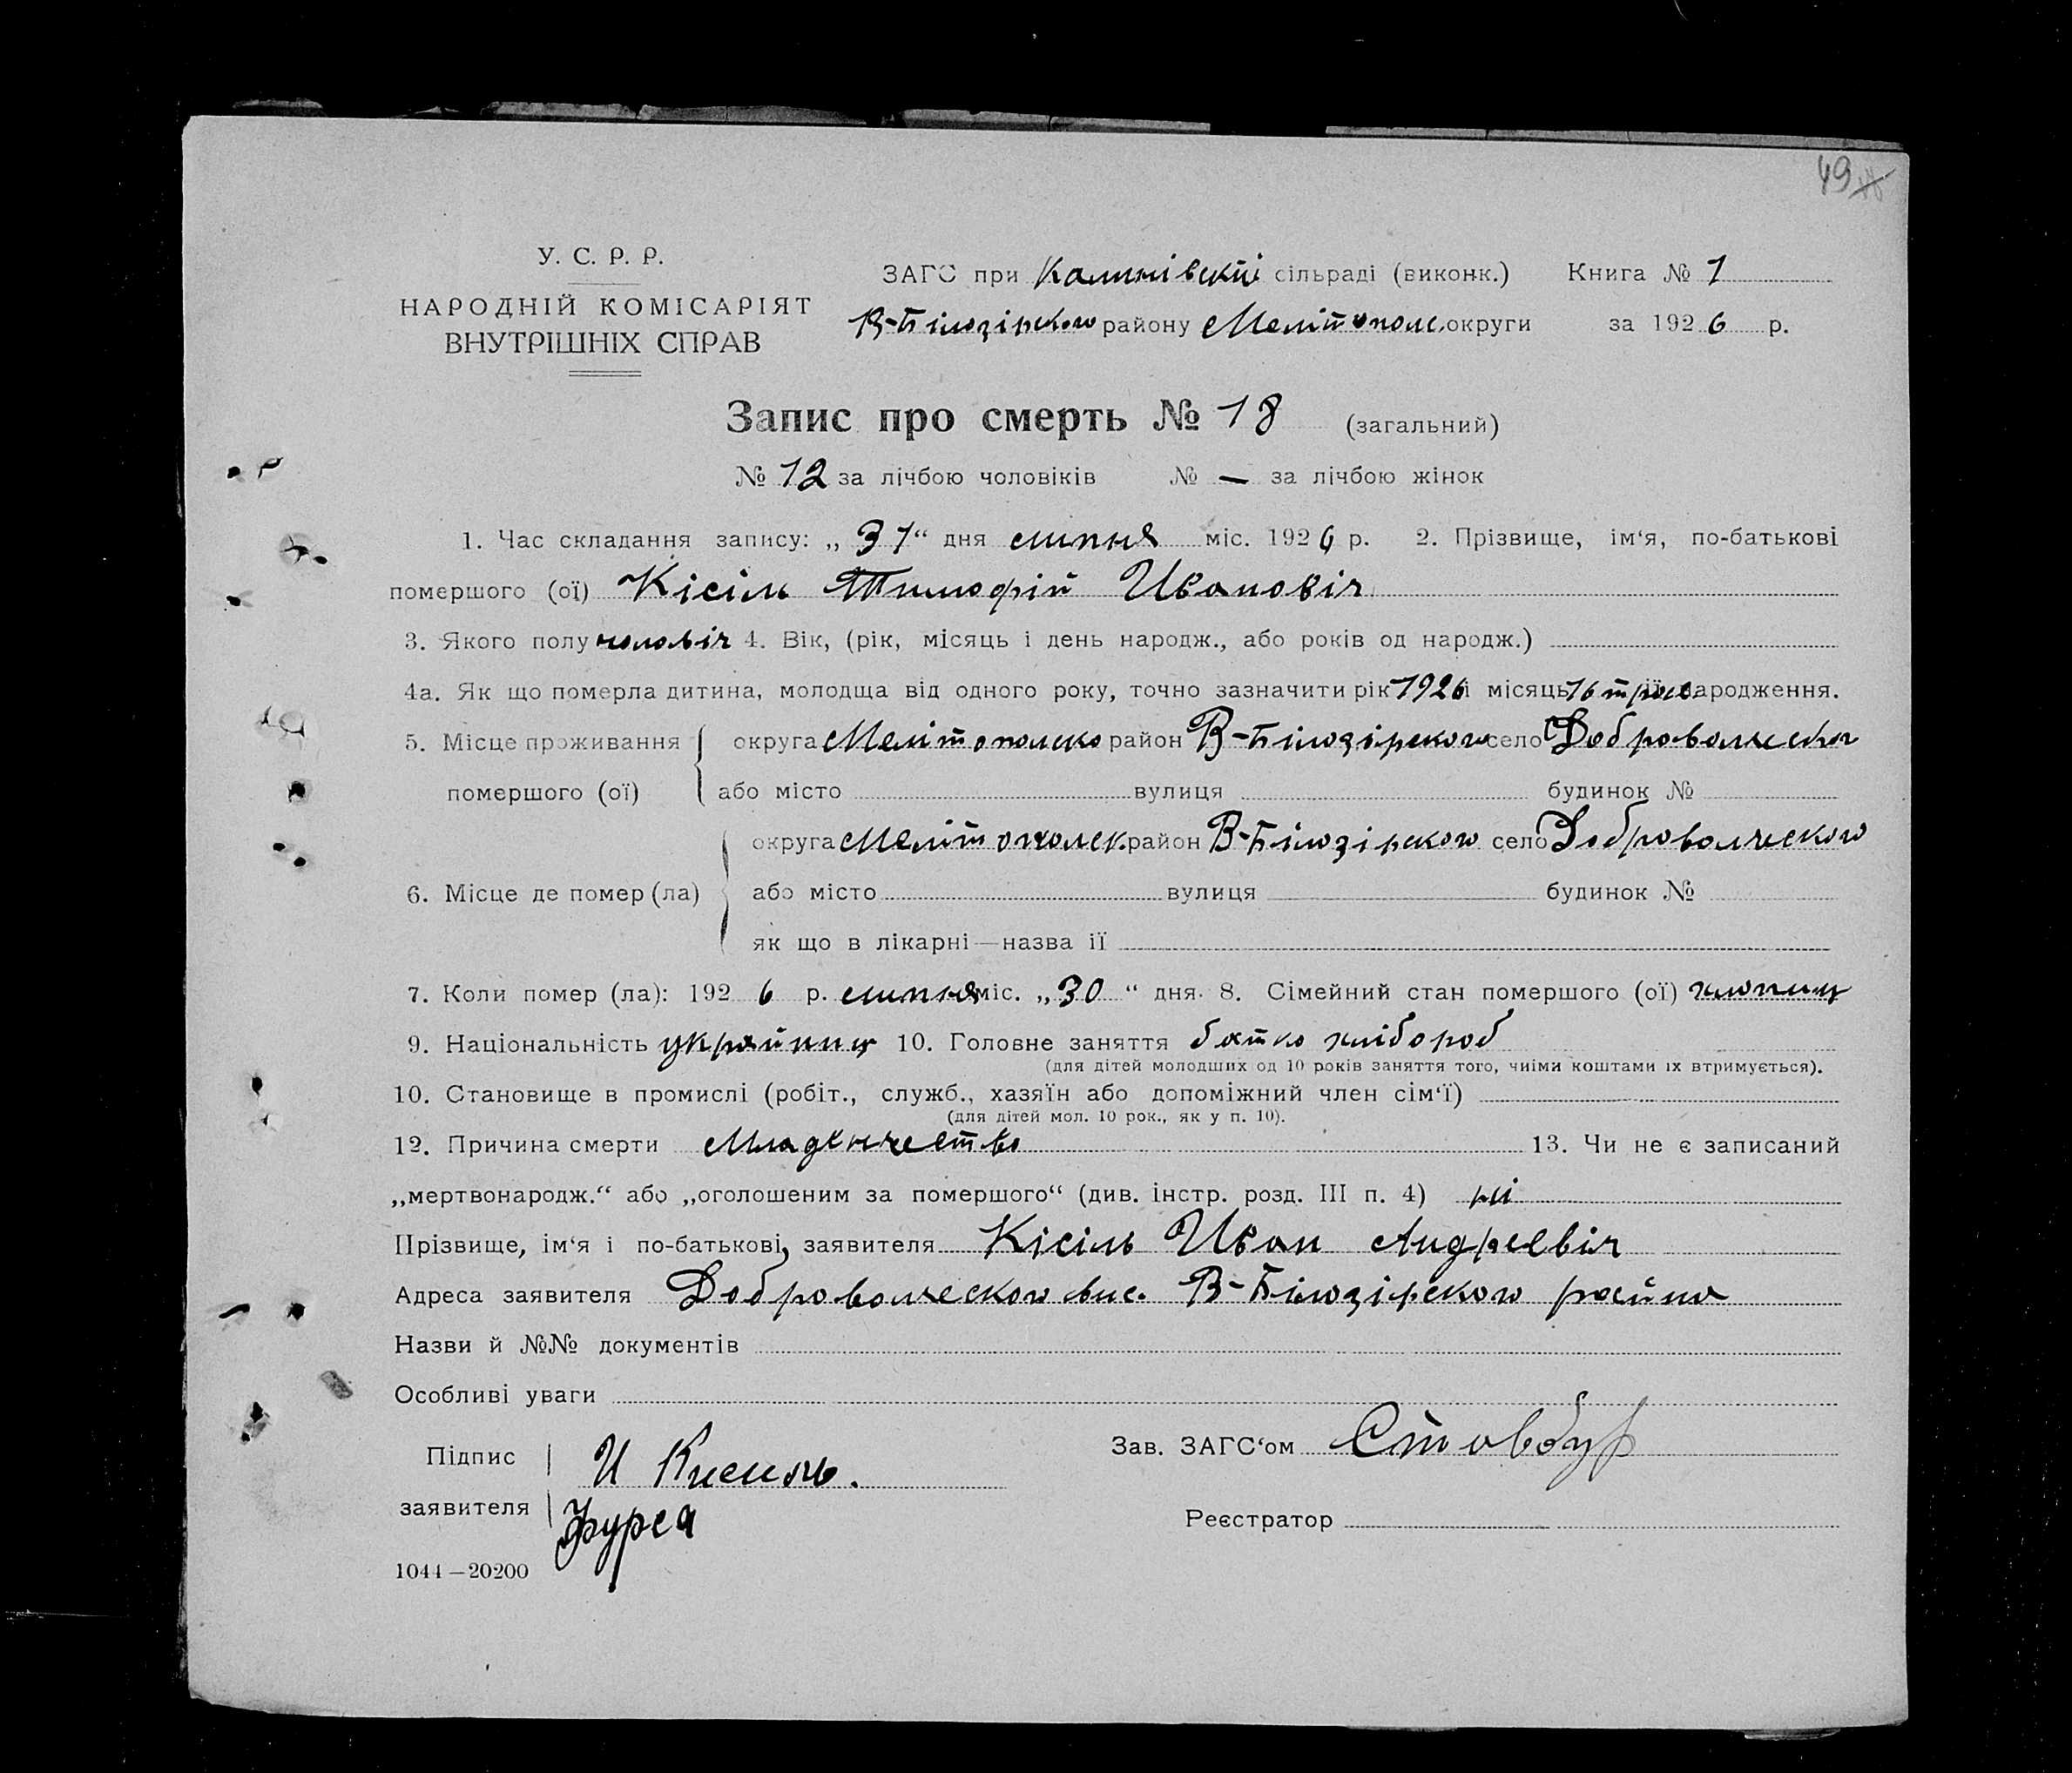 49
У. С. Р. Р.
НАРОДНІЙ КОМІСАРІЯТ
ВНУТРІШНІХ СПРАВ
ЗАГС при Калинівскій сільраді (виконк.) Книга № 1
В-Білозірского району Мелітополс. округи за 1926 р.
Запис про смерть № 18 (загальний)
№ 12 за лічбою чоловіків № — за лічбою жінок
1. Час складання запису: „31“ дня липня міс. 1926 р. 2. Прізвище, ім‘я, по-батькові
помершого (ої) Кісіль Тимофій Иванович
3. Якого полу чоловіч 4. Вік, (рік, місяць і день народж., або років од народж.)
4а. Як що померла дитина, молодща від одного року, точно зазначити рік 1926 і місяць 16 трав її народження.
5. Місце проживання помершого (ої) округа Мелітополско район В-Білозірского село Добровольческог
або місто вулиця будинок №
6. Місце де помер (ла) округа Мелітополск. район В-Білозірского село Добровольческого
або місто вулиця будинок №
як що в лікарні—назва її
7. Коли помер (ла): 1926 р. липня міс. „30“ дня. 8. Сімейний стан помершого (ої) хлопиц
9. Національність украйниц 10. Головне заняття батко хлібороб
(для дітей молодших од 10 років заняття того, чиїми коштами їх втримується).
10. Становище в промислі (робіт., служб., хазяїн або допоміжний член сім‘ї)
(для дітей мол. 10 рок., як у п. 10).
12. Причина смерти Младенчество 13. Чи не є записаний
„мертвонародж.“ або „оголошеним за помершого“ (див. інстр. розд. III п. 4) ні
Прізвище, ім‘я і по-батькові, заявителя Кісіль Иван Андреевіч
Адреса заявителя Добровольческого вис. В-Білозірского района
Назви й №№ документів
Особливі уваги
Підпис заявителя И Кисиль.
Фурса
Зав. ЗАГС‘ом Стовбур
Реєстратор
1044—20200